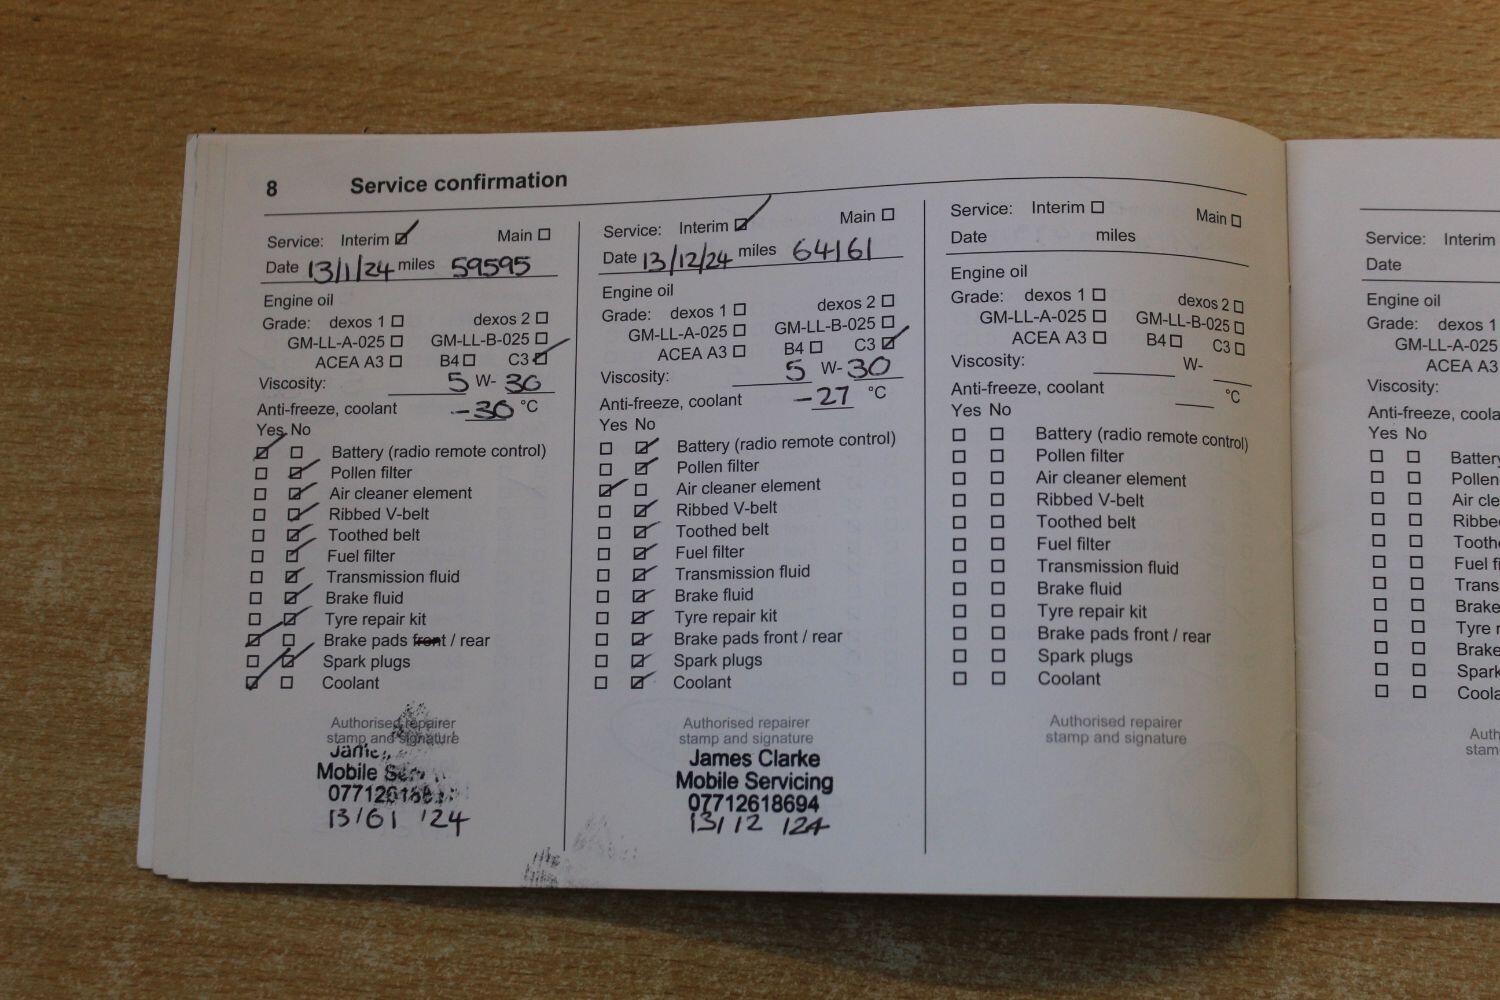 8 Service confirmation
Service: Interim Main
Date 13/1/24 miles 59595
Engine oil
Grade: dexos 1 dexos 2
GM-LL-A-025 GM-LL-B-025
ACEA A3 B4 C3
Viscosity: 5 W- 30
Anti-freeze, coolant -30 °C
Yes No
Battery (radio remote control)
Pollen filter
Air cleaner element
Ribbed V-belt
Toothed belt
Fuel filter
Transmission fluid
Brake fluid
Tyre repair kit
Brake pads front / rear
Spark plugs
Coolant
Authorised repairer
stamp and signature
Mobile
13/01 '24
Service: Interim Main
Date 13/12/24 miles 64161
Engine oil
Grade: dexos 1 dexos 2
GM-LL-A-025 GM-LL-B-025
ACEA A3 B4 C3
Viscosity: 5 W- 30
Anti-freeze, coolant -27 °C
Yes No
Battery (radio remote control)
Pollen filter
Air cleaner element
Ribbed V-belt
Toothed belt
Fuel filter
Transmission fluid
Brake fluid
Tyre repair kit
Brake pads front / rear
Spark plugs
Coolant
Authorised repairer
stamp and signature
James Clarke
Mobile Servicing
07712618694
13/12 /24
Service: Interim Main
Date miles
Engine oil
Grade: dexos 1 dexos 2
GM-LL-A-025 GM-LL-B-025
ACEA A3 B4 C3
Viscosity: W-
Anti-freeze, coolant °C
Yes No
Battery (radio remote control)
Pollen filter
Air cleaner element
Ribbed V-belt
Toothed belt
Fuel filter
Transmission fluid
Brake fluid
Tyre repair kit
Brake pads front / rear
Spark plugs
Coolant
Authorised repairer
stamp and signature
Service: Interim
Date
Engine oil
Grade: dexos 1
GM-LL-A-025
ACEA A3
Viscosity:
Anti-freeze, coola
Yes No
Battery
Pollen
Air cle
Ribbed
Tooth
Fuel fi
Trans
Brake
Tyre r
Brake
Spark
Coola
Auth
stam